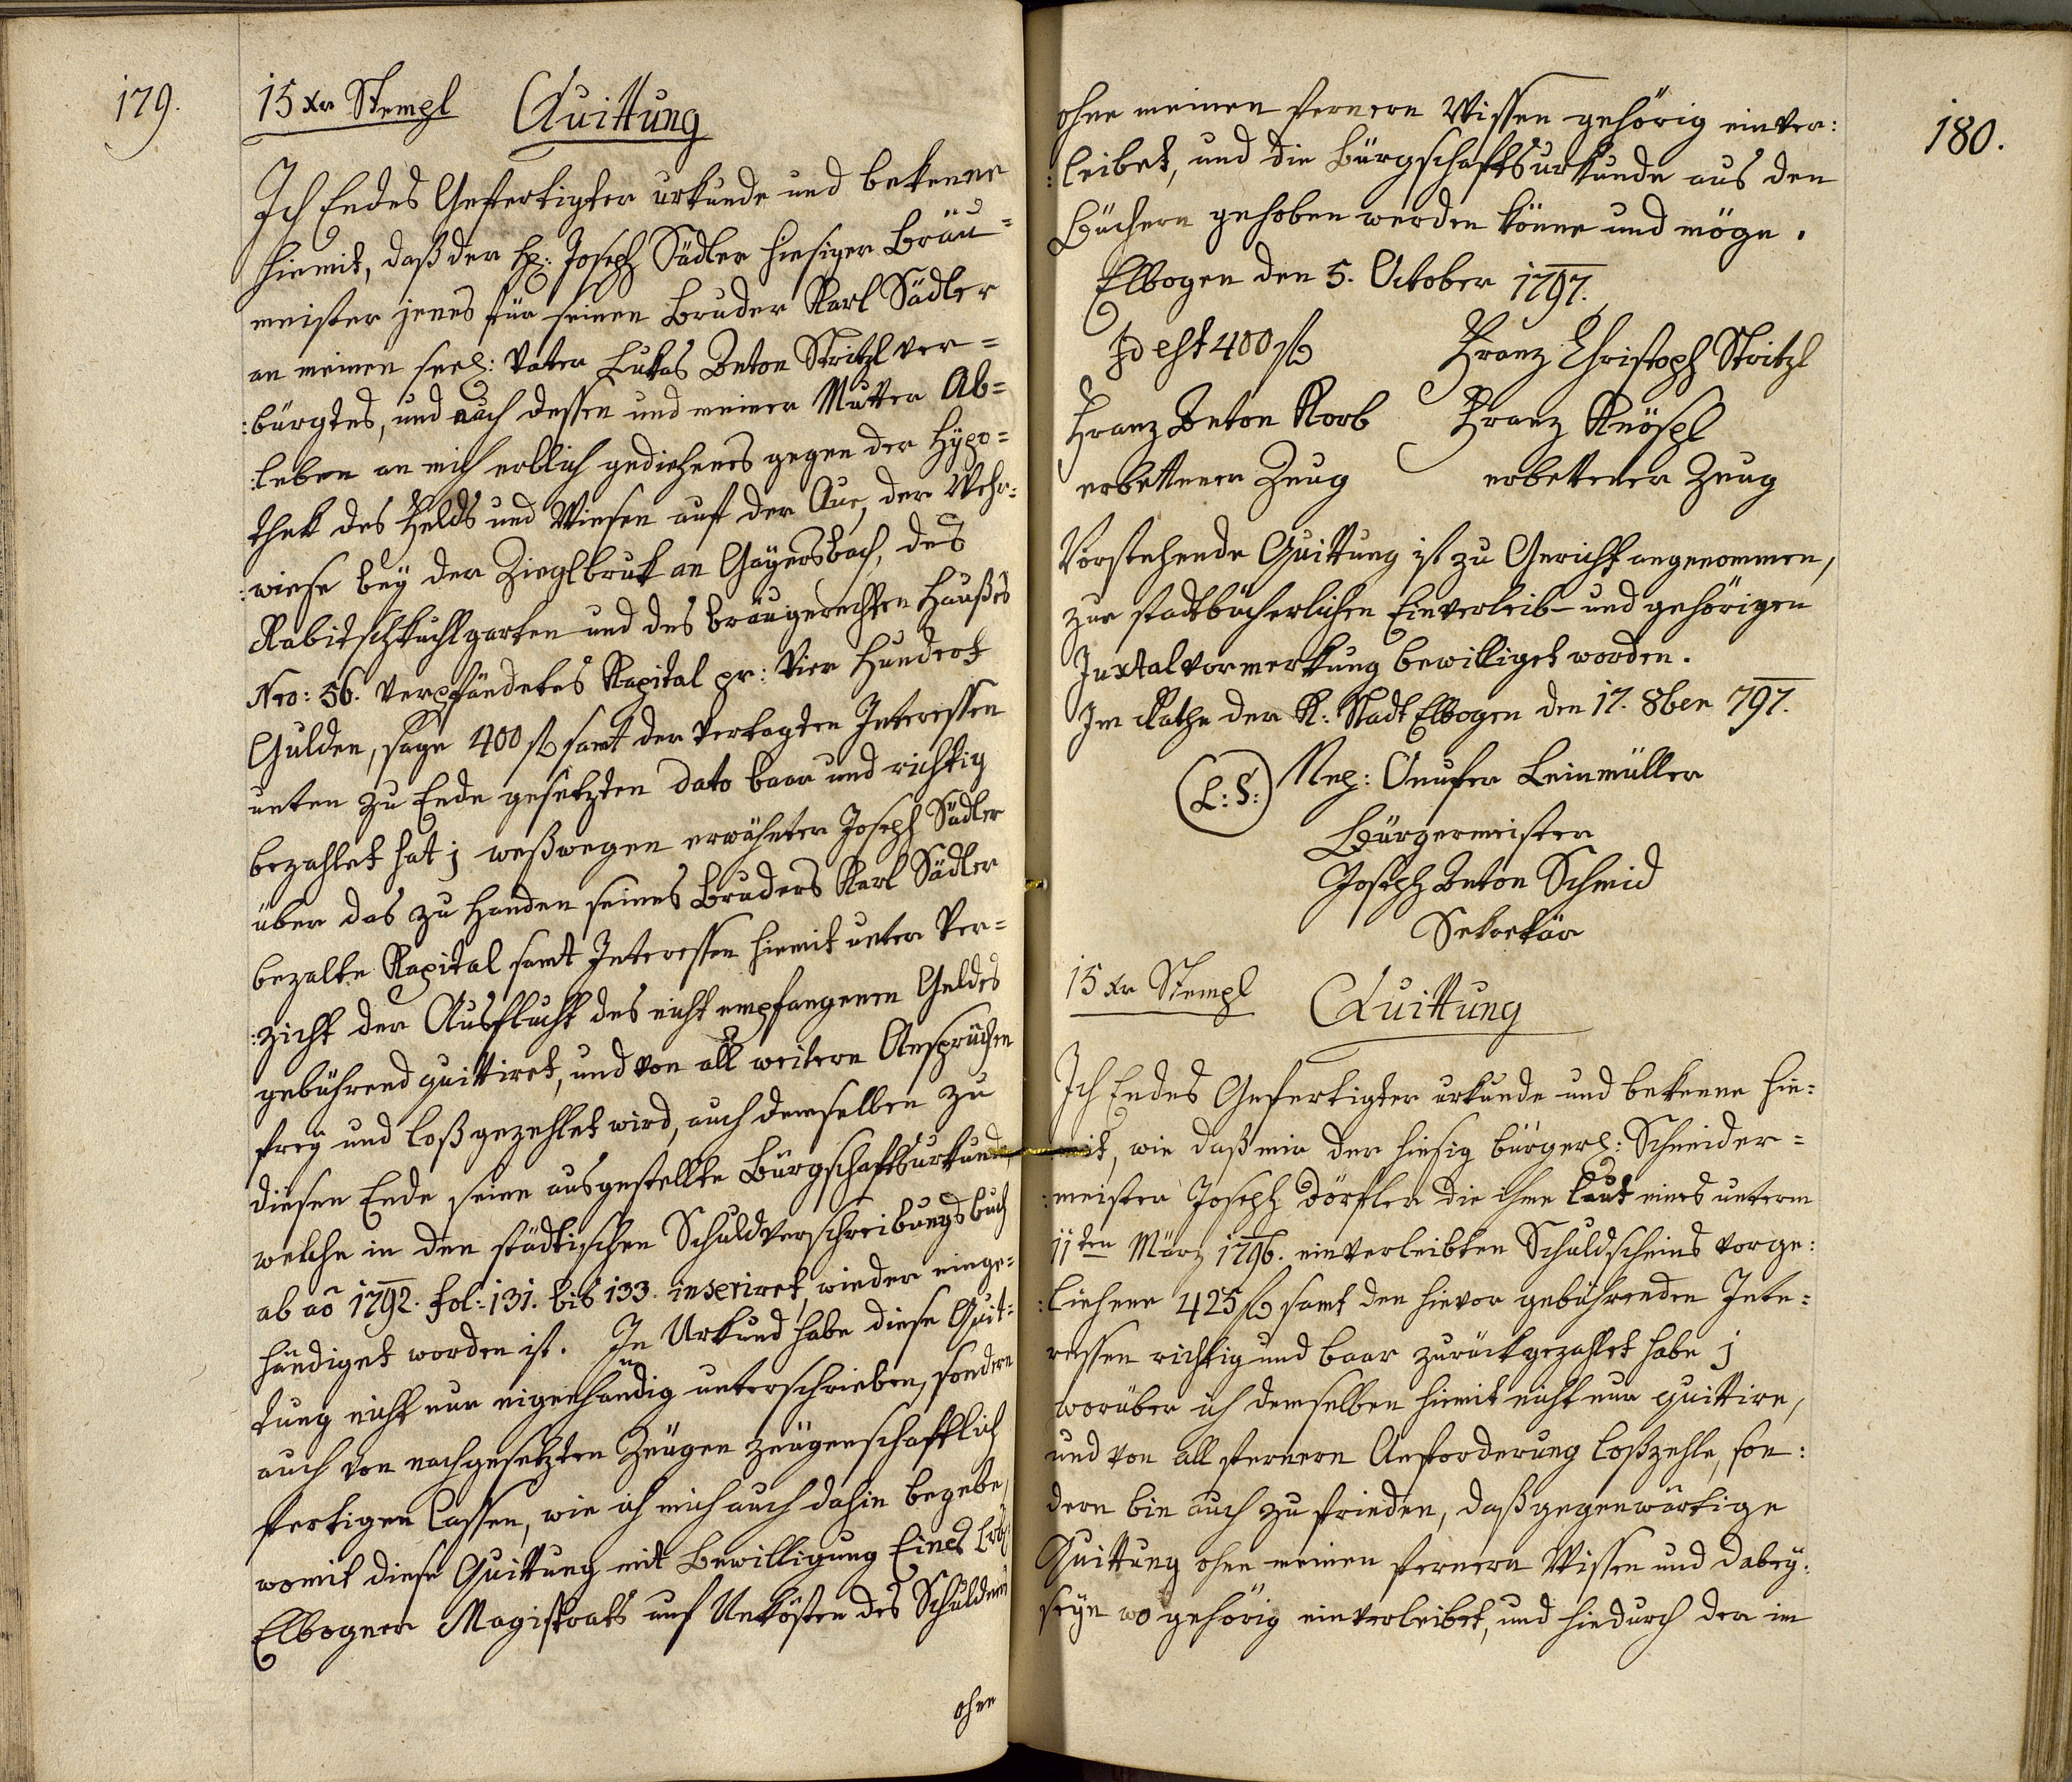 179.
15 xr Stempl Quittung
Ich Endes Gefertigter urkunde und bekenne
hiemit, daß der H: Joseph Sädler hiesiger Bräu=
meister jenes für seinen Bruder Karl Sädler
an meinen seel: Vater Lukas Anton Stritzl ver=
:bürgtes, und nach dessen und meiner Mutter Ab=
:leben an mich erblich gediehenes gegen der Hypo=
thek des Felds und Wiesen auf der Aue, der Wehr=
:wiese bey der Zieglbruk an Gayersbach, des
Rabitschkuchlgarten und des bräugerechten Haußes
Nro: 56. verpfändetes Kapital pr: Vier Hundert
Gulden, sage 400 fl samt der vertagten Interessen
unten zu Ende gesetzten dato baar und richtig
bezahlet hat; weßwegen erwähnter Joseph Sädler
über das zu Handen seines Bruders Karl Sädler
bezalte Kapital samt Interessen hiemit unter Ver=
:zicht der Ausflucht des nicht empfangenen Geldes
gebührend quittiret, und von all weitern Ansprüchen
frey und loß gezehlet wird, auch demselben zu
diesen Ende seine ausgestellte Bürgschaftsurkunde,
welche in den städtischen Schuldverschreibungsbuch
ab aõ 1792. fol: 131. bis 133. inseriret, wieder einge=
händiget worden ist. In Urkund habe diese Quit=
tung nicht nur eigenhändig unterschrieben, sondern
auch von nachgesetzten Zeugen zeugenschaftlich
fertigen lassen, wie ich mich auch dahin begebe,
womit diese Quittung mit Bewilligung Eines Löbl:
Elbogner Magistrats auf Unkösten des Schuldners
ohne
180.
ohne meinen fernern Wissen gehörig einver:
:leibet, und die Bürgschaftsurkunde aus den
Büchern gehoben werden könne und möge.
Elbogen den 5. October 1797.
Id est 400 fl Franz Christoph Stritzl
Franz Anton Korb Franz Knöspl
erbettener Zeug erbettener Zeug
Vorstehende Quittung ist zu Gericht angenommen,
zur stadtbücherlichen Einverleib- und gehörigen
Juxtalvormerkung bewilliget worden.
Im Rathe der K: Stadt Elbogen den 17. 8ber 797.
(L:S:) Nep: Onufer Leinmüller
Bürgermeister
Joseph Anton Schmid
Sekretär
15 xr Stempl Quittung
Ich Endes Gefertigter urkunde und bekenne hie=
mit, wie daß mir der hiesig bürgerl: Schneider=
:meister Joseph Dörfler die ihme laut eines unterm
11ten März 1796. einverleibten Schuldscheins vorge:
:liehene 425 fl samt den hievor gebührenden Inte=
ressen richtig und baar zurückgezahlet habe;
worüber ich demselben hiemit nicht nur quittire,
und von all fernern Anforderung loßzehle, son:
dern bin auch zu frieden, daß gegenwärtige
Quittung ohne meinen fernern Wissen und dabey:
seyn wo gehörig einverleibet, und hiedurch der im